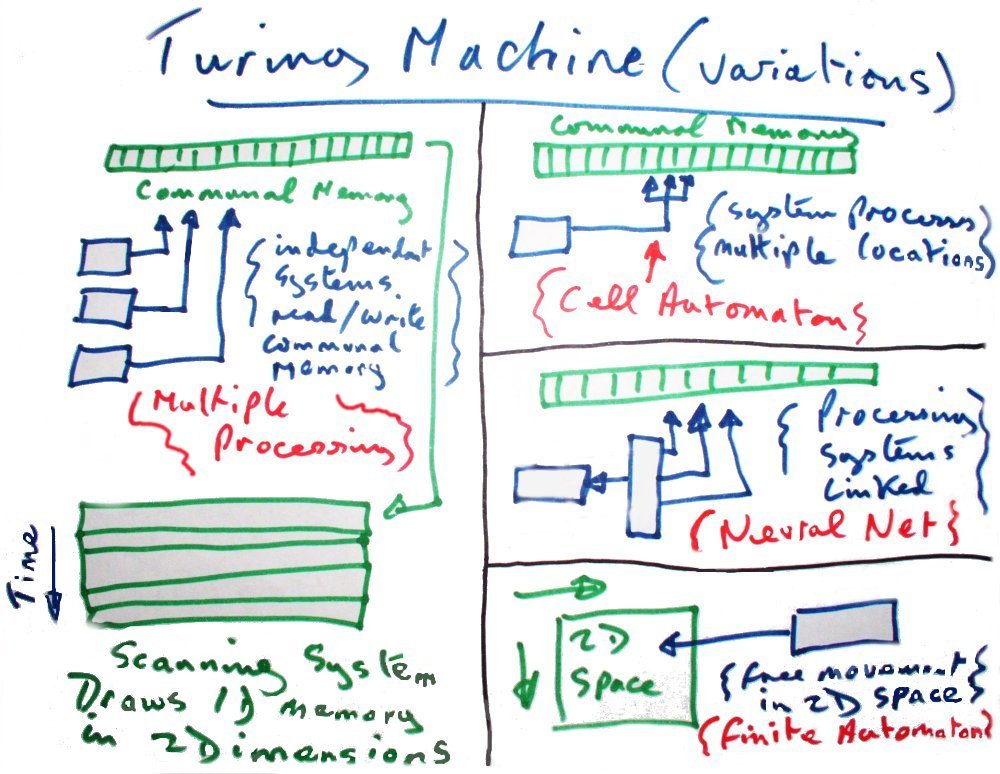 Turing Machine (variations)
Communal Memory
{independant
systems
read/write
communal
memory}
{Multiple
Processing}
Time
Scanning System
Draws 1D memory
in 2 Dimensions
Communal Memory
{system processes
multiple locations}
{Cell Automaton}
{Processing
systems
Linked}
{Neural Net}
2D
Space
{free movement
in 2D space}
{finite Automaton}